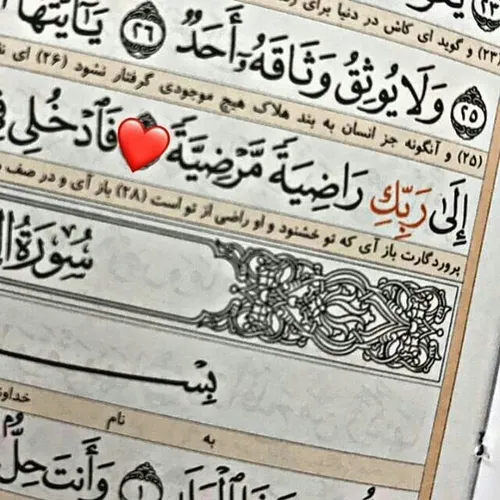 (۲۳) و گوید ای کاش در دنیا برای
۲۵ وَلَا يُوثِقُ وَثَاقَهُۥٓ أَحَدٞ ۲۶ يَٰٓأَيَّتُهَا
(۲۵) و آنگونه جز انسان به بند هلاک هیچ موجودی گرفتار نشود (۲۶) ای
إِلَىٰ رَبِّكِ رَاضِيَةٗ مَّرۡضِيَّةٗ ❤️ فَٱدۡخُلِي
پروردگارت باز آی که تو خشنود و او راضی از تو است (۲۸) باز آی و در صف
سُورَةُ
بِسۡ
به نام
وَأَنتَ حِلُّۢ